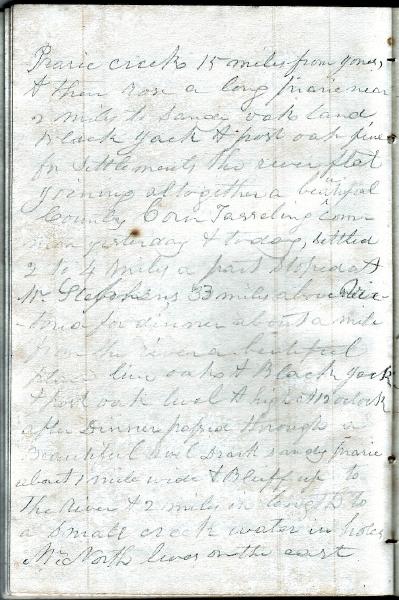 Prarie creek 15 miles from yours,
& then rose a long prarie near
2 miles to Sande oak land
black Jack & post oak fine
for Settlements the river flat
joining altogether a beutiful
County Corn Tasseling Com
mon yesterday & today, settled
2 to 4 miles a part Stoped at
Mr. Stephens 33 miles above Vic-
-toria for dinner about a mile
from the river a beutiful
place live oaks & Black Jack
& post oak level & high at 12 oclock
after Dinner passed through a
Beautiful level Dark sandy prarie
about 1 mile wide & Bluff up to
the River & 2 miles in length to
a Small creek water in holes
Mr. North lives on the east